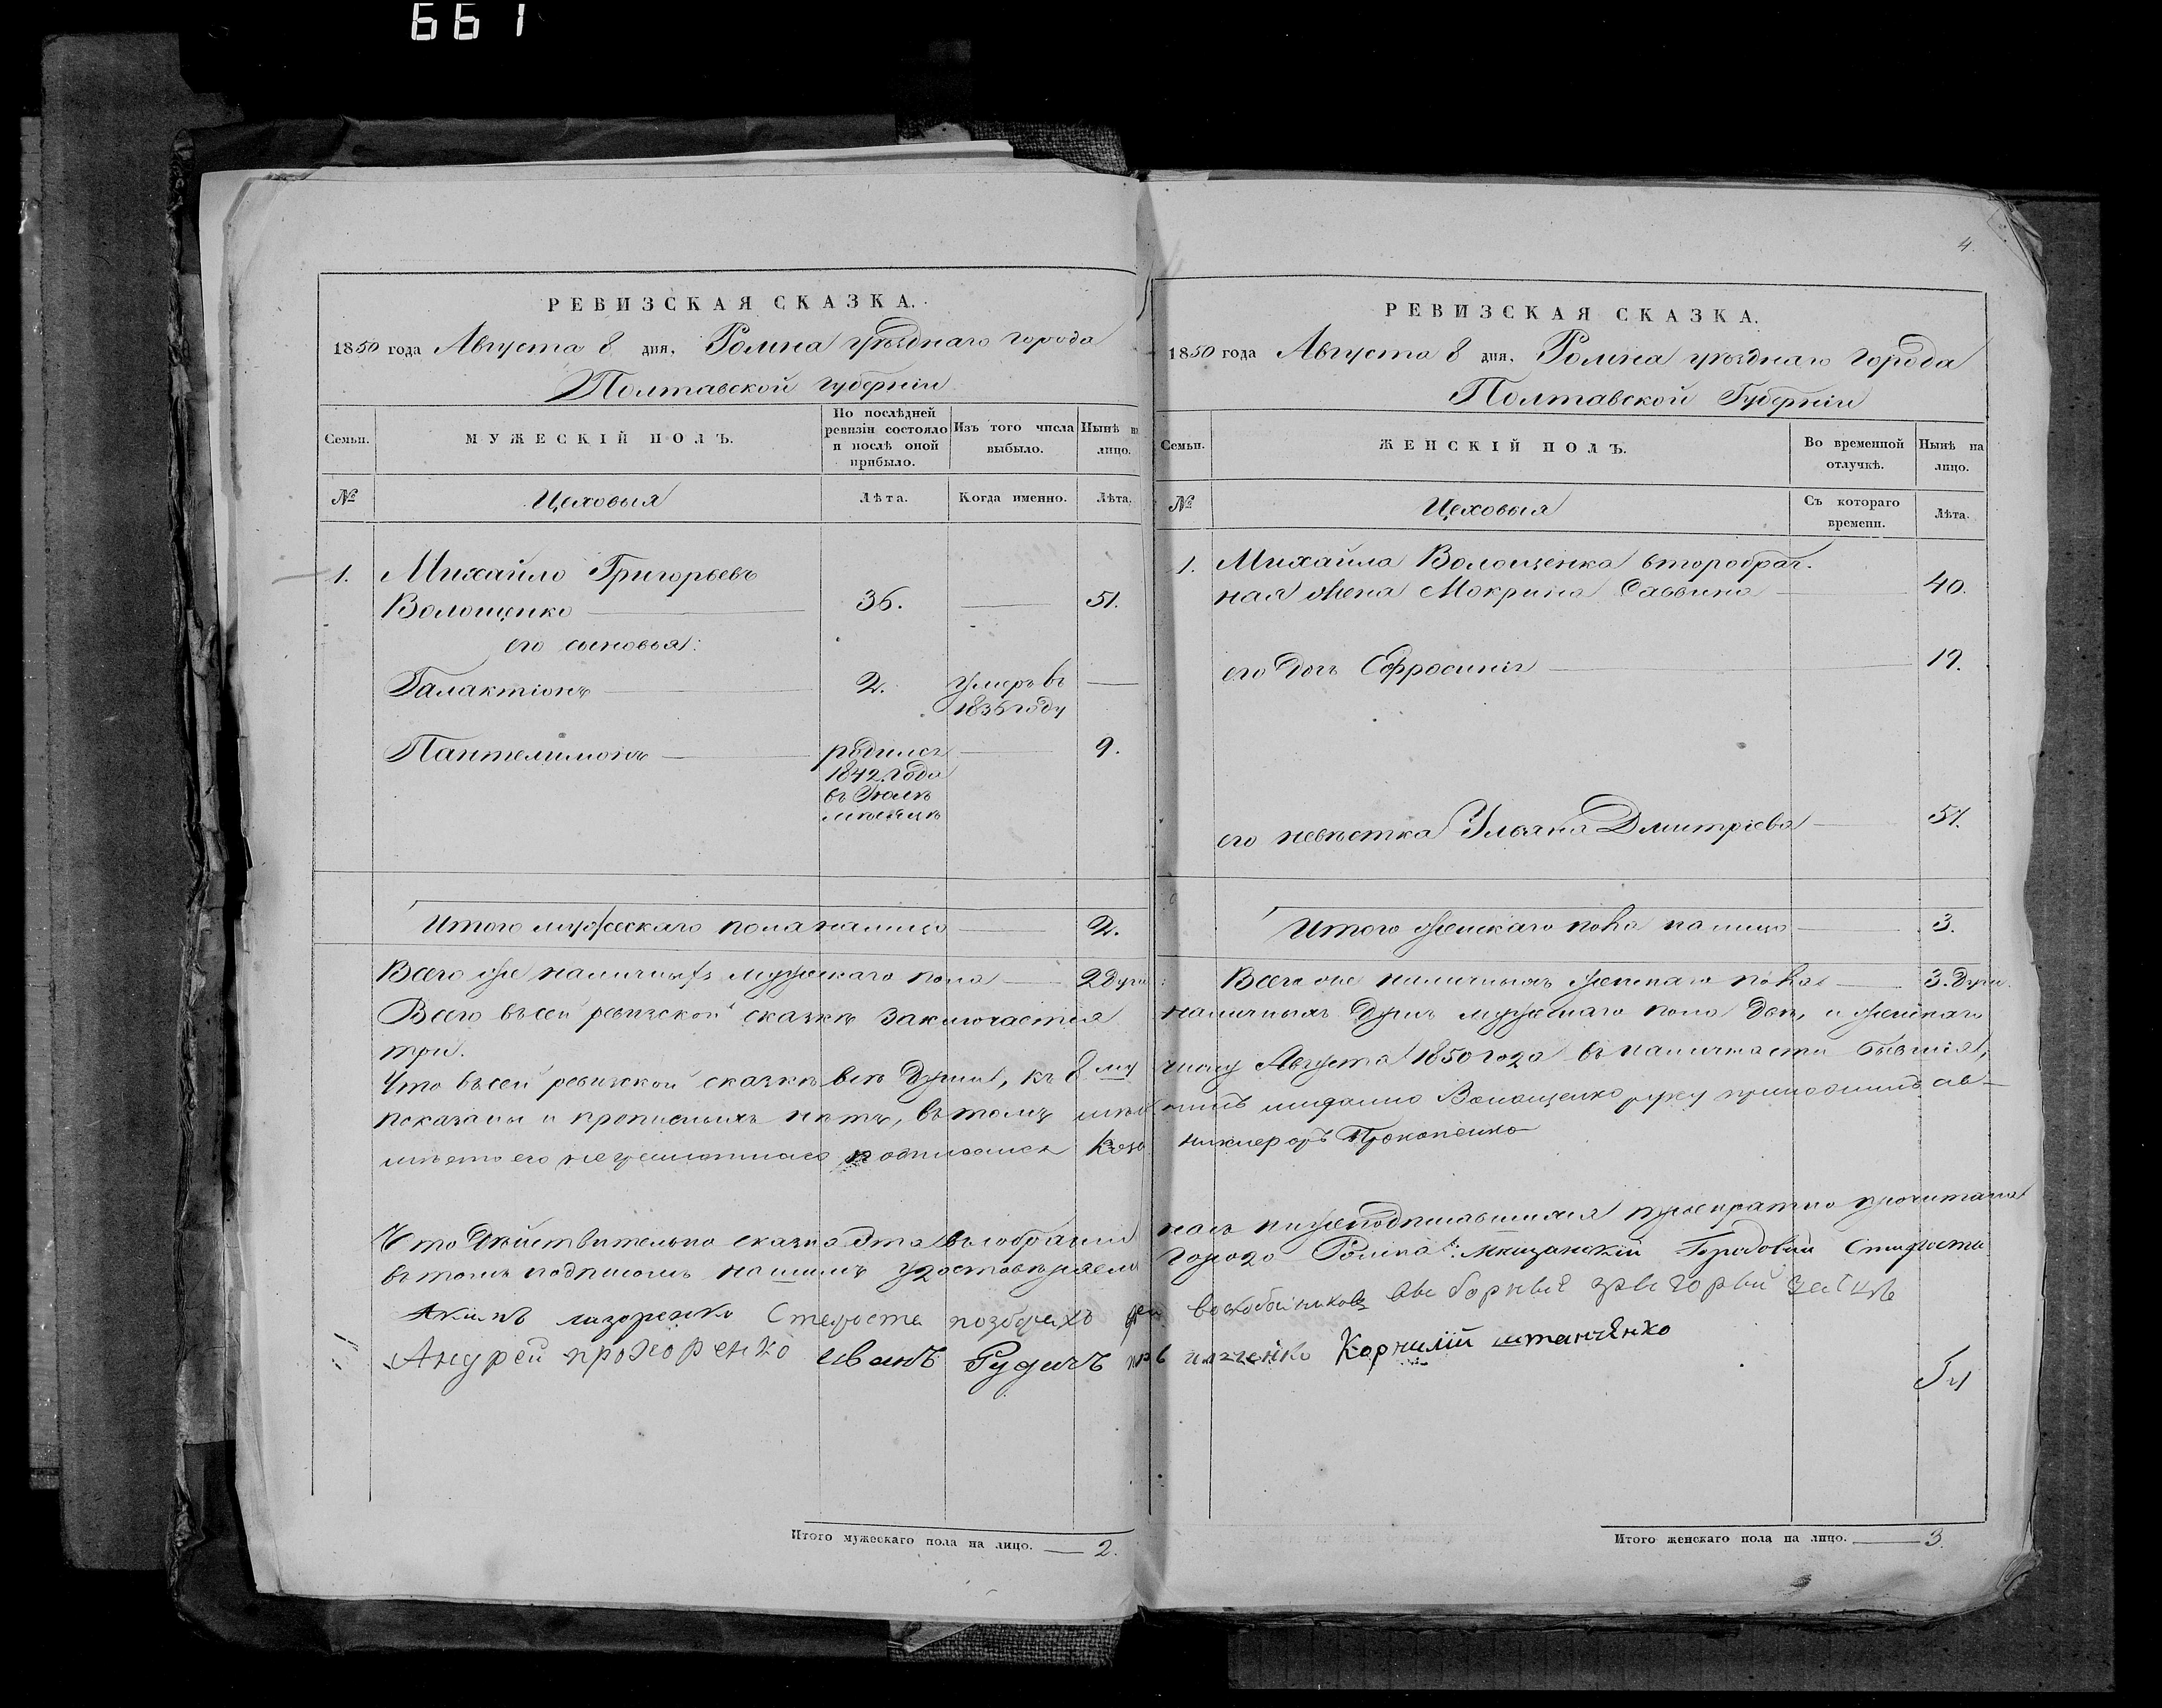 661
РЕВИЗСКАЯ СКАЗКА.
1850 года Августа 8 дня. Ромна уѣзднаго города
Полтавской губерніи
Семьи.
МУЖЕСКІЙ ПОЛЪ.
По послѣдней ревизіи состояло и послѣ оной прибыло.
Изъ того числа выбыло.
Нынѣ на лицо.
№
Цеховыя
Лѣта.
Когда именно.
Лѣта.
1. Михайло Григорьевъ
Волощенко 36. 51.
его сыновья:
Галактіонъ 2. умеръ въ
1836 году
Пантелимонъ родился 9.
1842 года
въ Іюлѣ
мѣсяцѣ
Итого мужескаго пола налицо 2.
Всего же наличныхъ мужескаго пола 2 души
Всего въ сей ревизской сказкѣ заключается
три.
Что въ сей ревизской сказкѣ всѣ души, къ 8му
показаны и прописныхъ нѣтъ, въ томъ
Что действительно сказка эта въ собраніи
въ томъ подписомъ нашимъ удостовѣряемъ
Акимъ лазоренко Староста
Андрей прохоренко иванъ Рудичъ
Итого мужескаго пола на лицо. 2.
4.
РЕВИЗСКАЯ СКАЗКА.
1850 года Августа 8 дня. Ромна уѣзднаго города
Полтавской Губерніи
Семьи.
ЖЕНСКІЙ ПОЛЪ.
Во временной отлучкѣ.
Нынѣ на лицо.
№
Цеховыя
Съ котораго времени.
Лѣта.
1. Михайла Волощенка второбрач-
ная жена Мокрина Саввина 40.
его дочь Ефросинія 19.
его невѣстка Ульяна Дмитріева 51.
Итого женскаго пола налицо 3.
Всего же наличныхъ женскаго пола 3. души.
наличныхъ душъ мужескаго пола двѣ, и женскаго
числу Августа 1850 года въ наличности бывшія,
Волощенко руку приложилъ
Прокопенко
насъ нижеподписавшихся троекратно прочитана
города Ромна: Мѣщанскій Городовый Староста
Корнилій штанченко
Итого женскаго пола на лицо. 3.